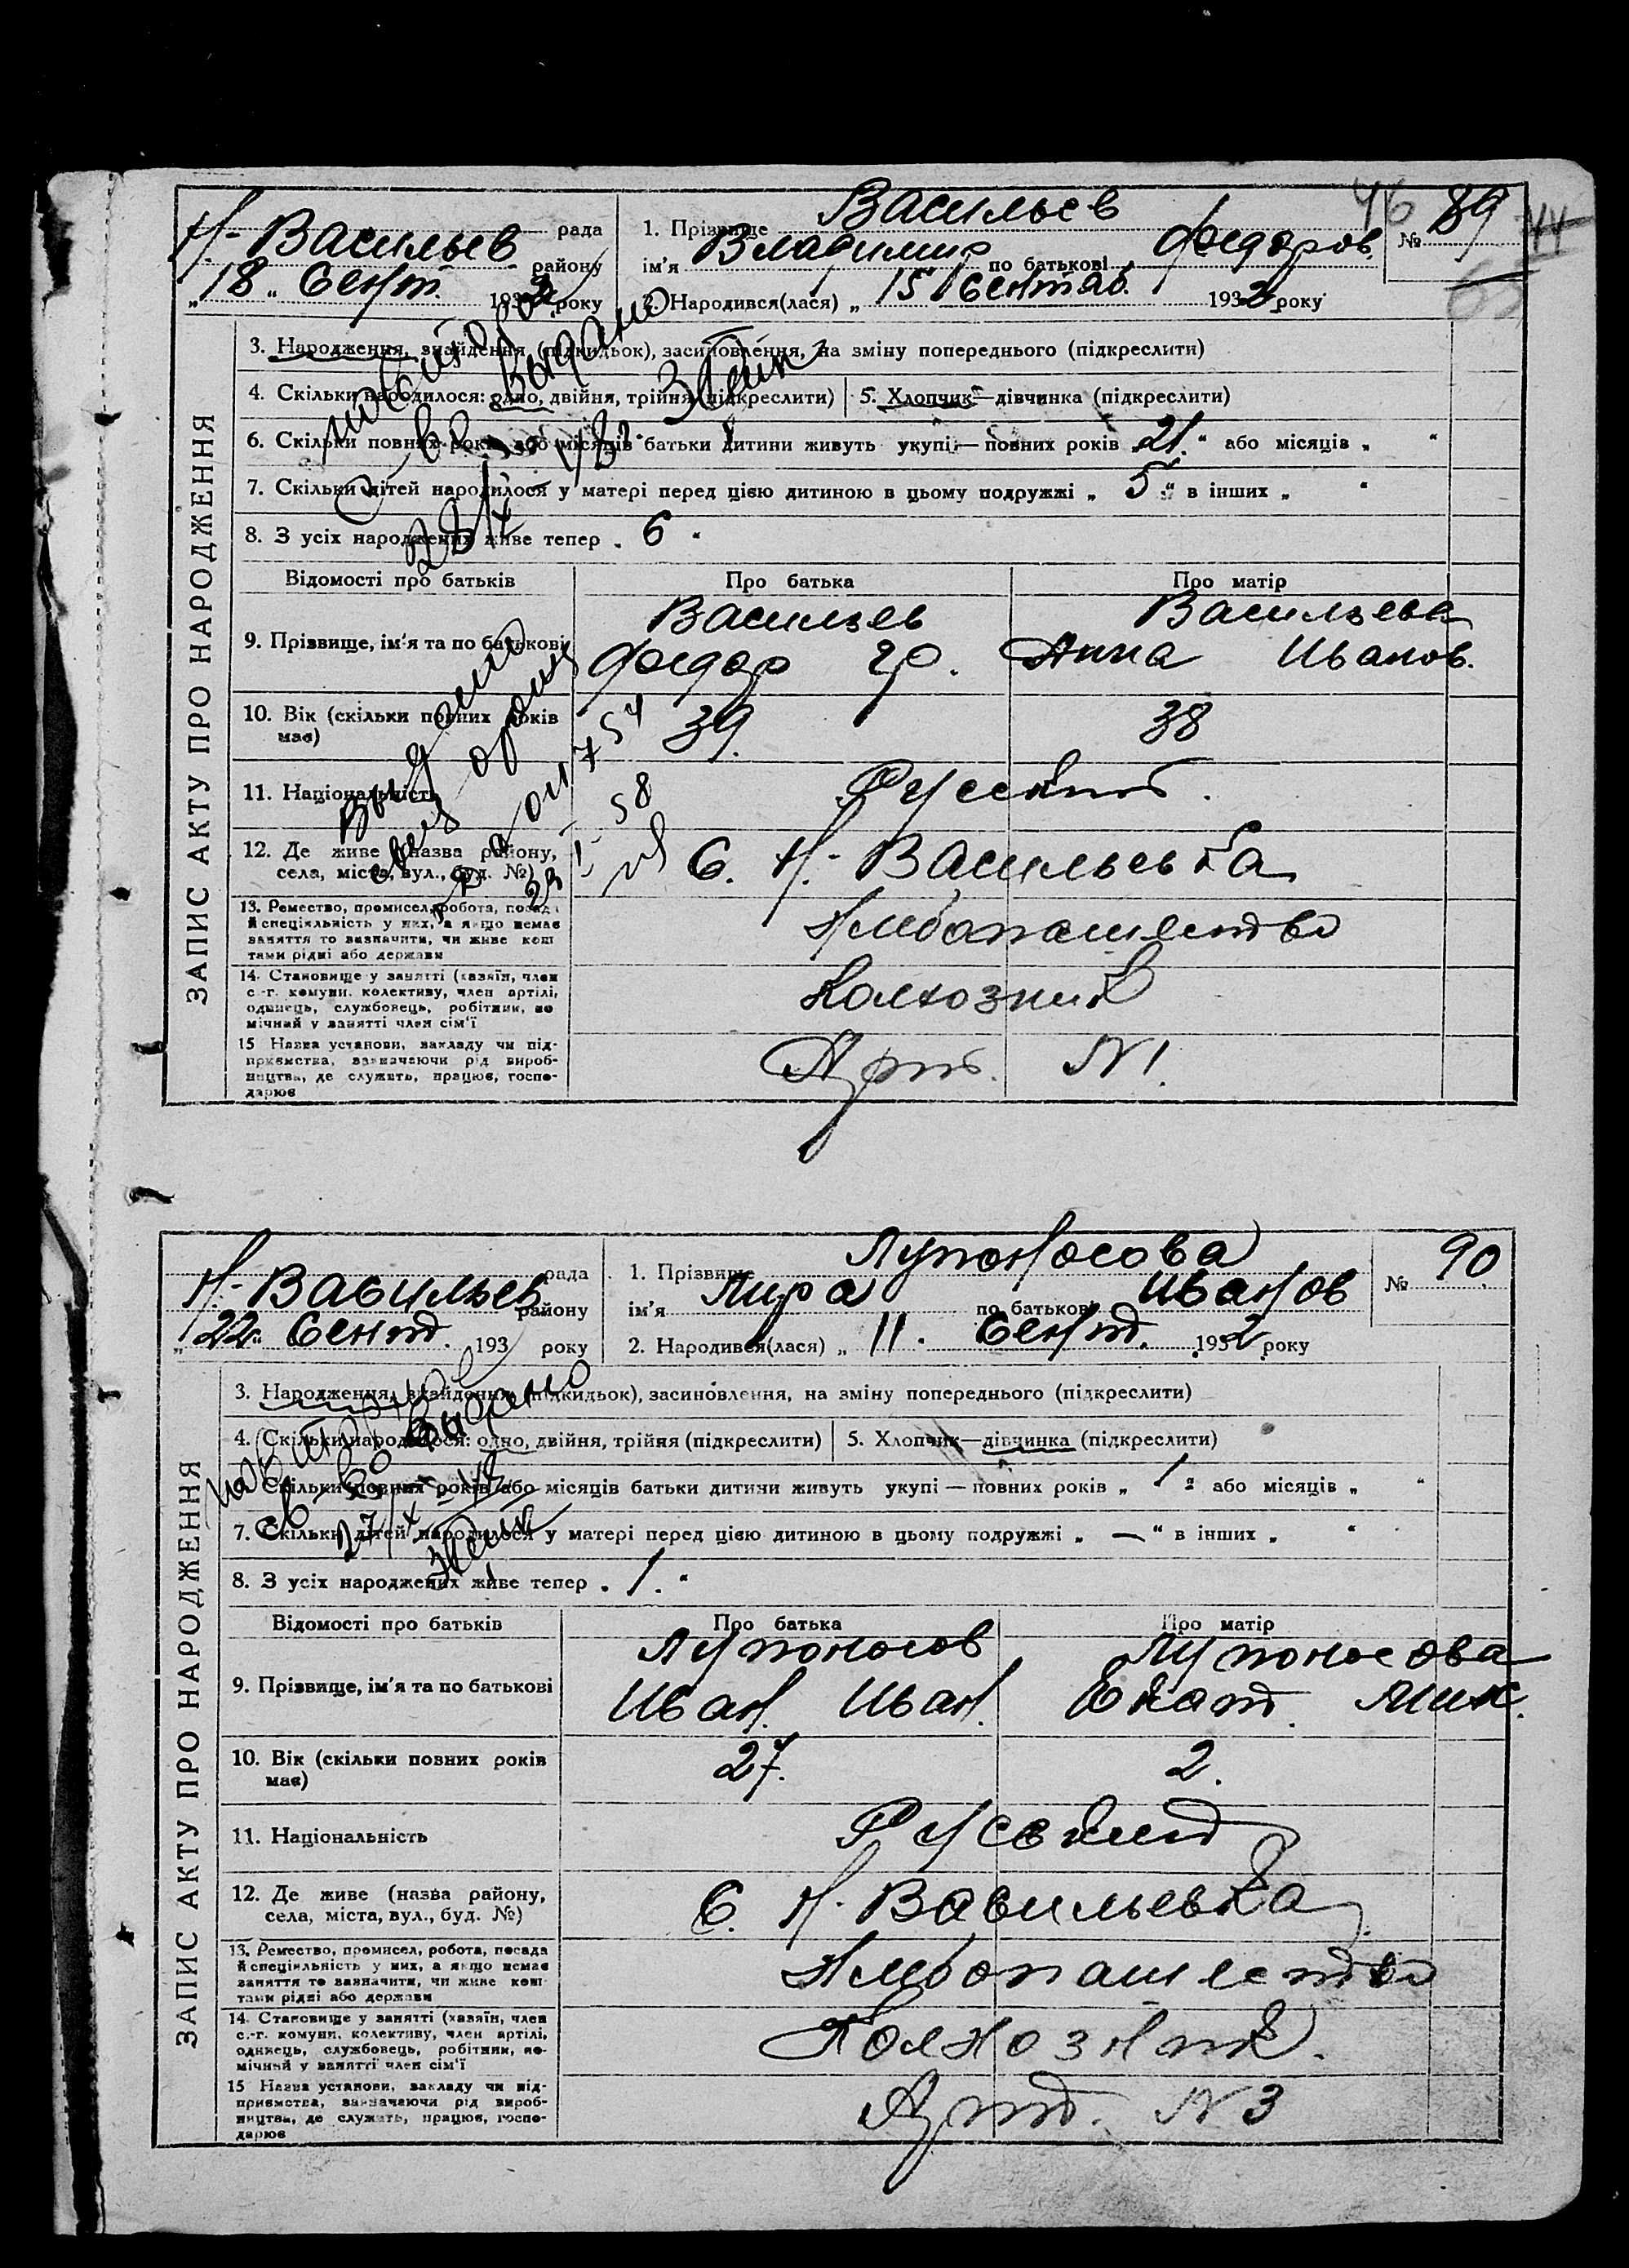 46
Н-Васильев рада
району
„18„ Сент. 1932 року
1. Прізвище Васильев
ім'я Владимир по батькові Федоров.
2. Народився(лася) „ 15 Сентяб. 1932 року
№ 89
44
3. Народження, знайдення (підкидьок), засиновлення, на зміну попереднього (підкреслити)
4. Скільки народилося: одно, двійня, трійня (підкреслити)
5. Хлопчик—дівчинка (підкреслити)
6. Скільки повних років або місяців батьки дитини живуть укупі — повних років „21.“ або місяців „ “
7. Скільки дітей народилося у матері перед цією дитиною в цьому подружжі „ 5 “ в інших „ “
8. З усіх народжених живе тепер „ 6 “
Відомості про батьків
Про батька
Про матір
9. Прізвище, ім'я та по батькові
Васильев
Федор Гр.
Васильева
Анна Иванов.
10. Вік (скільки повних років
має)
39.
38
11. Національність
Русский.
12. Де живе (назва району,
села, міста, вул., буд. №)
С. Н.-Васильевка
13. Ремество, промисел, робота, посада
й спеціяльність у них, а якщо немає
заняття то зазначити, чи живе кош
тами рідні або держави
Хлебопашество
14. Становище у занятті (хазяїн, член
с.-г. комуни, колективу, член артілі,
одинець, службовець, робітник, по
мічний у занятті член сім'ї
Колхозник
15 Назва установи, закладу чи під-
приємства, зазначаючи рід вироб-
ництва, де служить, працює, госпо-
дарює
Арт. N 1.
ЗАПИС АКТУ ПРО НАРОДЖЕННЯ
выдано
28/X
Выдано
58
Н-Васильев рада
району
„22„ Сент. 193 року
1. Прізвище Лупоносова
ім'я Лира по батькові Иванов
2. Народився(лася) „ 11. Сент. 1932 року
№ 90.
3. Народження, знайдення (підкидьок), засиновлення, на зміну попереднього (підкреслити)
4. Скільки народилося: одно, двійня, трійня (підкреслити)
5. Хлопчик—дівчинка (підкреслити)
Скільки повних років або місяців батьки дитини живуть укупі — повних років „ 1 “ або місяців „ “
7. Скільки дітей народилося у матері перед цією дитиною в цьому подружжі „ — “ в інших „ “
8. З усіх народжених живе тепер „ 1. “
Відомості про батьків
Про батька
Про матір
9. Прізвище, ім'я та по батькові
Лупоносов
Иван. Иван.
Лупоносова
Екат. Мих.
10. Вік (скільки повних років
має)
27.
2.
11. Національність
Русский
12. Де живе (назва району,
села, міста, вул., буд. №)
С. Н. Васильевка
13. Ремество, промисел, робота, посада
й спеціяльність у них, а якщо немає
заняття то зазначити, чи живе кош-
тами рідні або держави
Хлебопашество
14. Становище у занятті (хазяїн, член
с.-г. комуни, колективу, член артілі,
одинець, службовець, робітник, по-
мічний у занятті член сім'ї
Колхозник.
15 Назва установи, закладу чи під-
приємства, зазначаючи рід вироб-
ництва, де служить, працює, госпо-
дарює
Арт. N 3
ЗАПИС АКТУ ПРО НАРОДЖЕННЯ
св-во выдано
27/X